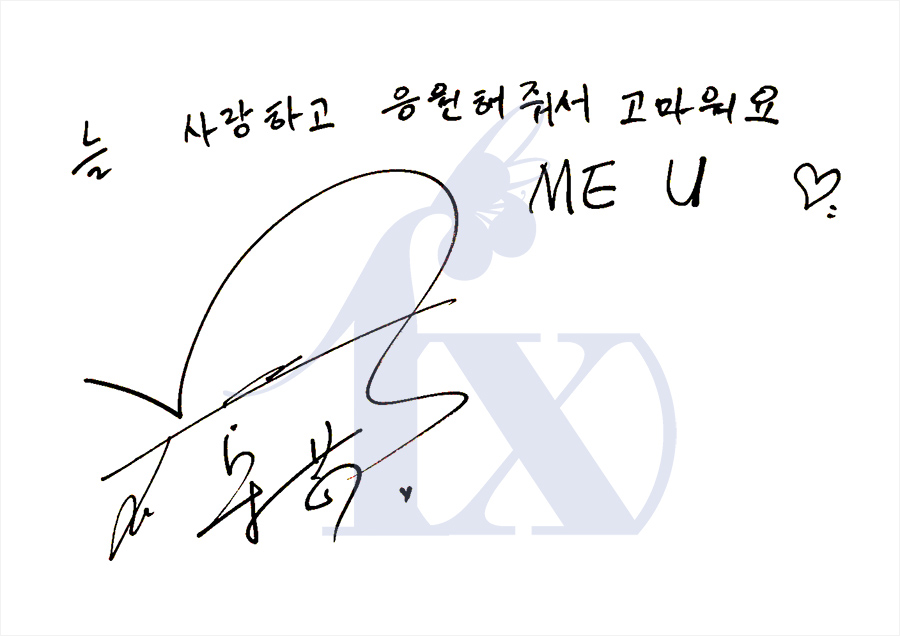 늘 사랑하고 응원해줘서 고마워요
ME U ♡
fx